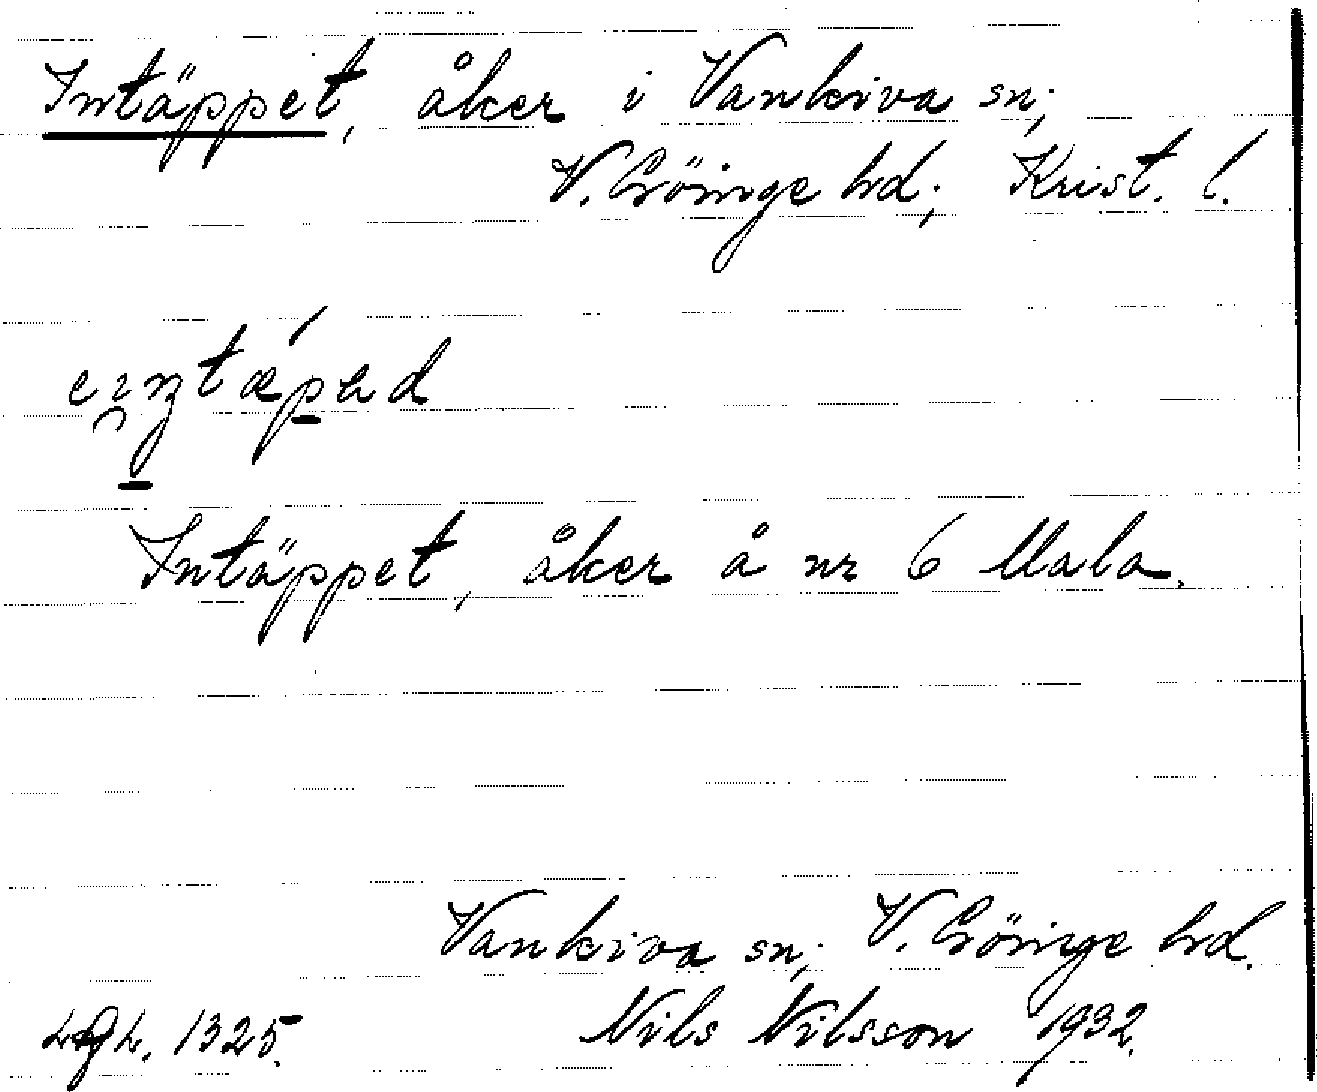 Intäppet, åker i Vankiva sn;
V. Göinge hd; Krist. l.
Intäppet, åker å nr 6 Mala.
Vankiva sn; V. Göinge hd.
1325. Nils Nilsson 1932.